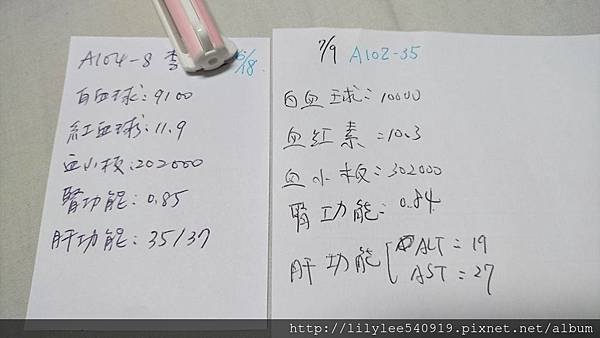 A104-8 李 6/18
白血球:9100
紅血球:11.9
血小板:202000
腎功能:0.85
肝功能:35/37
7/9 A102-35
白血球:10000
血紅素:10.3
血小板:302000
腎功能:0.84
肝功能 ALT=19
AST=27
http://lilylee540919.pixnet.net/album